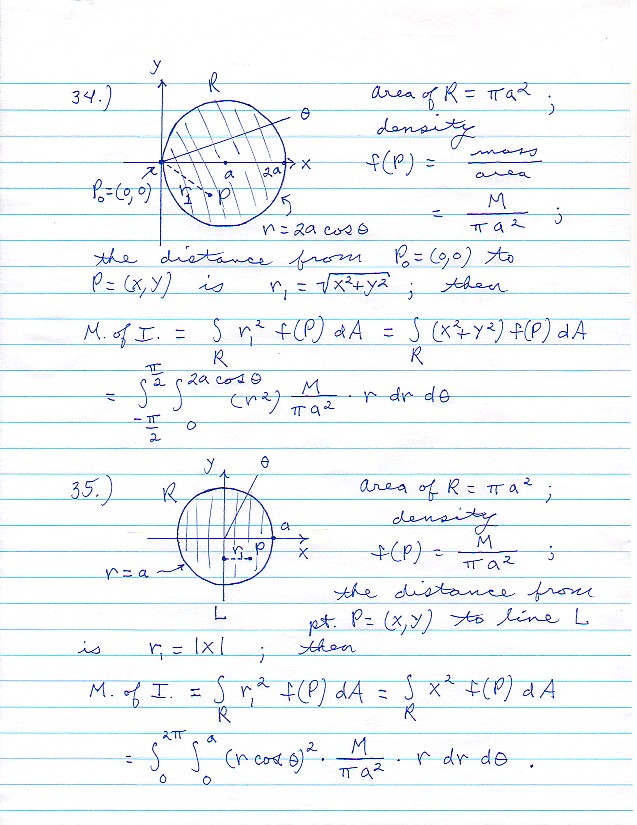 34.)
y
R
θ
x
a
2a
r₁
P
P₀=(0,0)
r = 2a cos θ
area of R = πa² ;
density
f(P) = mass/area
= M/πa² ;
the distance from P₀=(0,0) to
P=(x,y) is r₁ = √x²+y² ; then
M. of I. = ∫_R r₁² f(P) dA = ∫_R (x²+y²) f(P) dA
= ∫_{-π/2}^{π/2} ∫_0^{2a cos θ} (r²) M/πa² · r dr dθ
35.)
y
θ
R
a
x
r₁
P
r = a
L
area of R = πa² ;
density
f(P) = M/πa² ;
the distance from
pt. P=(x,y) to line L
is r₁ = |x| ; then
M. of I. = ∫_R r₁² f(P) dA = ∫_R x² f(P) dA
= ∫_0^{2π} ∫_0^a (r cos θ)² · M/πa² · r dr dθ .